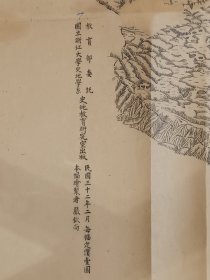 教育部委託
國立浙江大學史地學系 史地教育研究室出版
民國三十二年二月 每幅定價壹圓
本幅繪製者 嚴欽尚